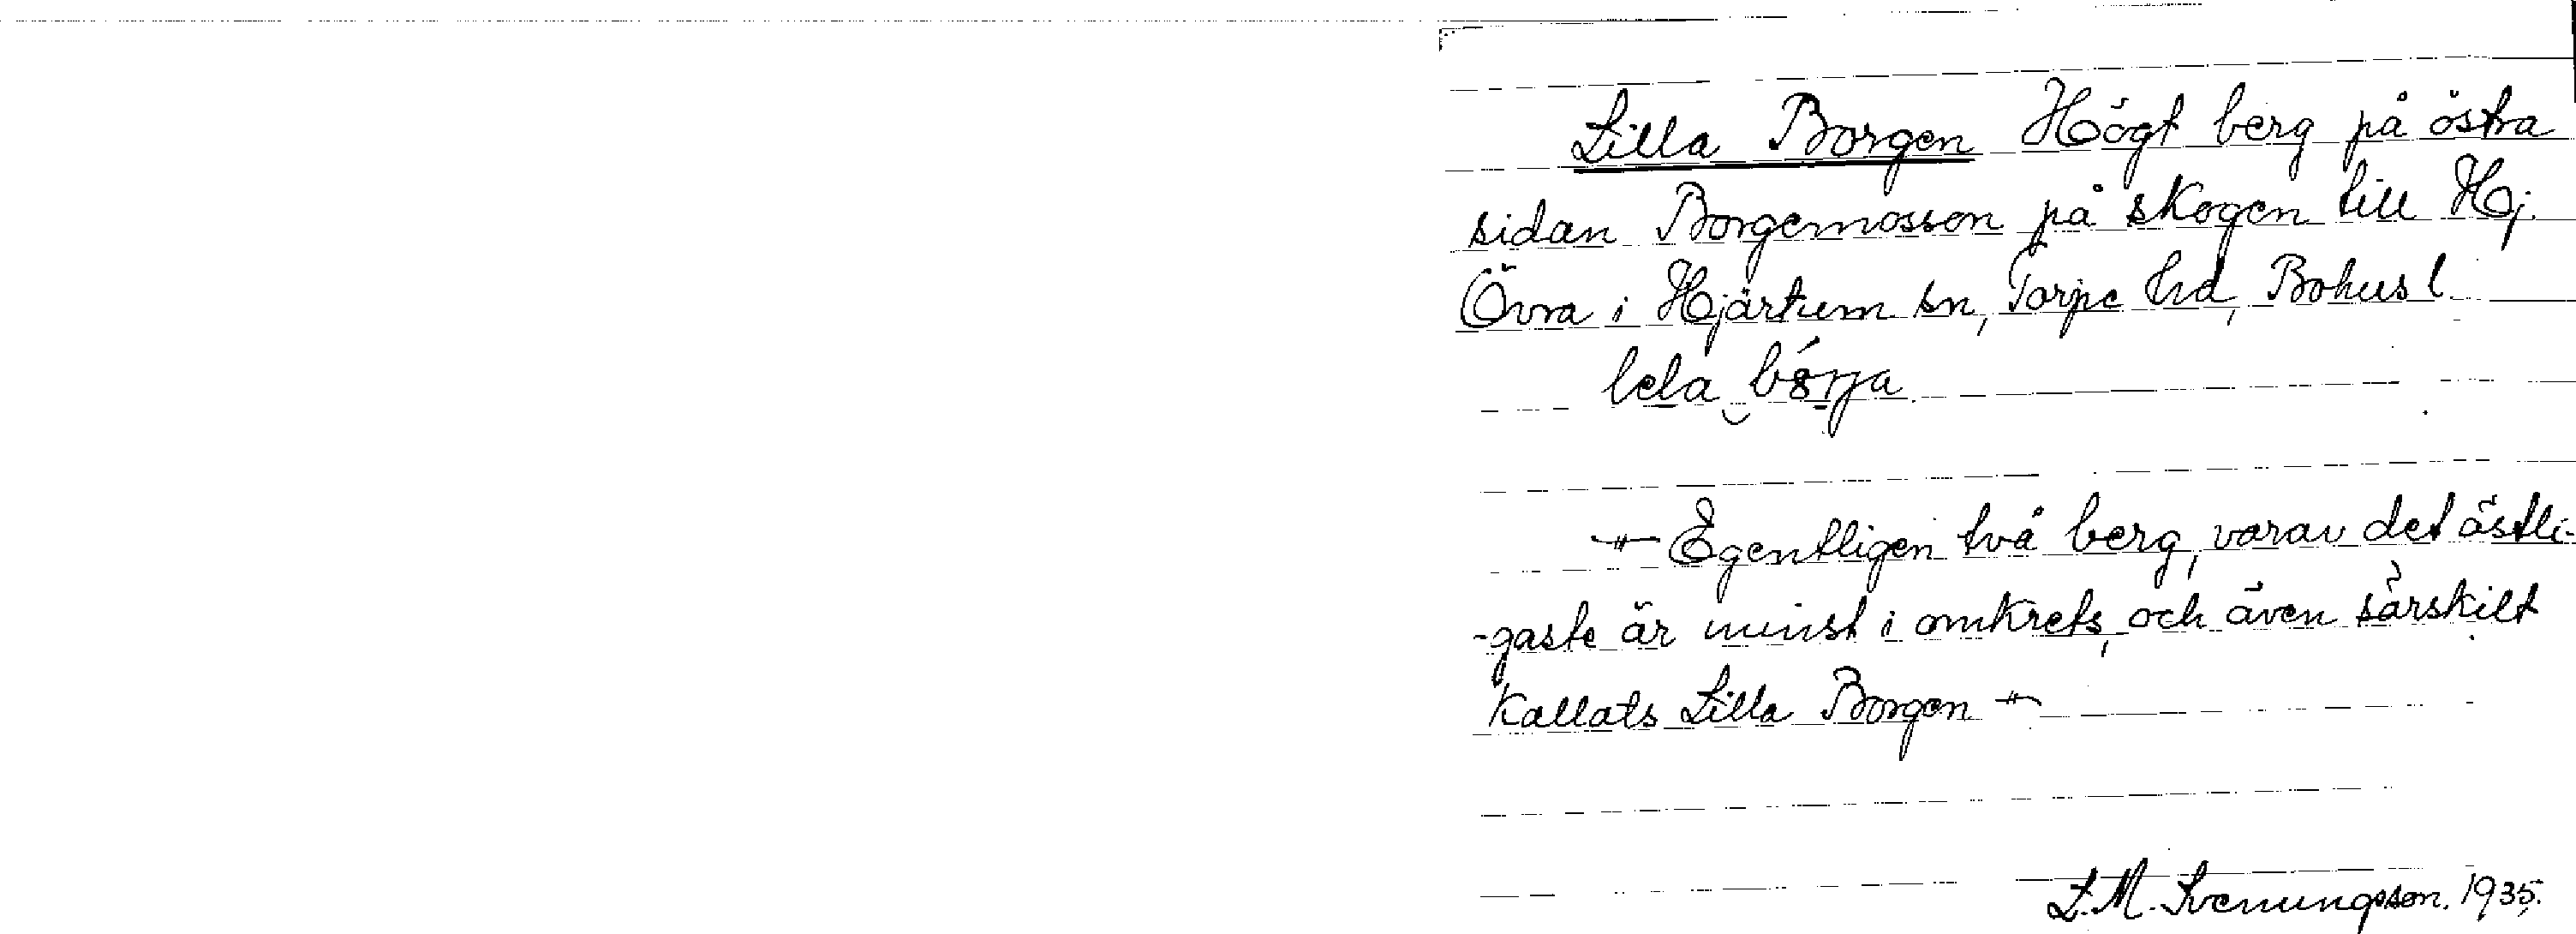 Lilla Borgen Högt berg på östra
sidan Borgemosson på skogen till Hj.
Övra i Hjärtum sn, Torpe hd, Bohusl
lela börja
Egentligen två berg, varav det östli-
-gaste är minst i omkrets, och även särskilt
Kallats Lilla Borgen
L.M. Svenungsson. 1935.